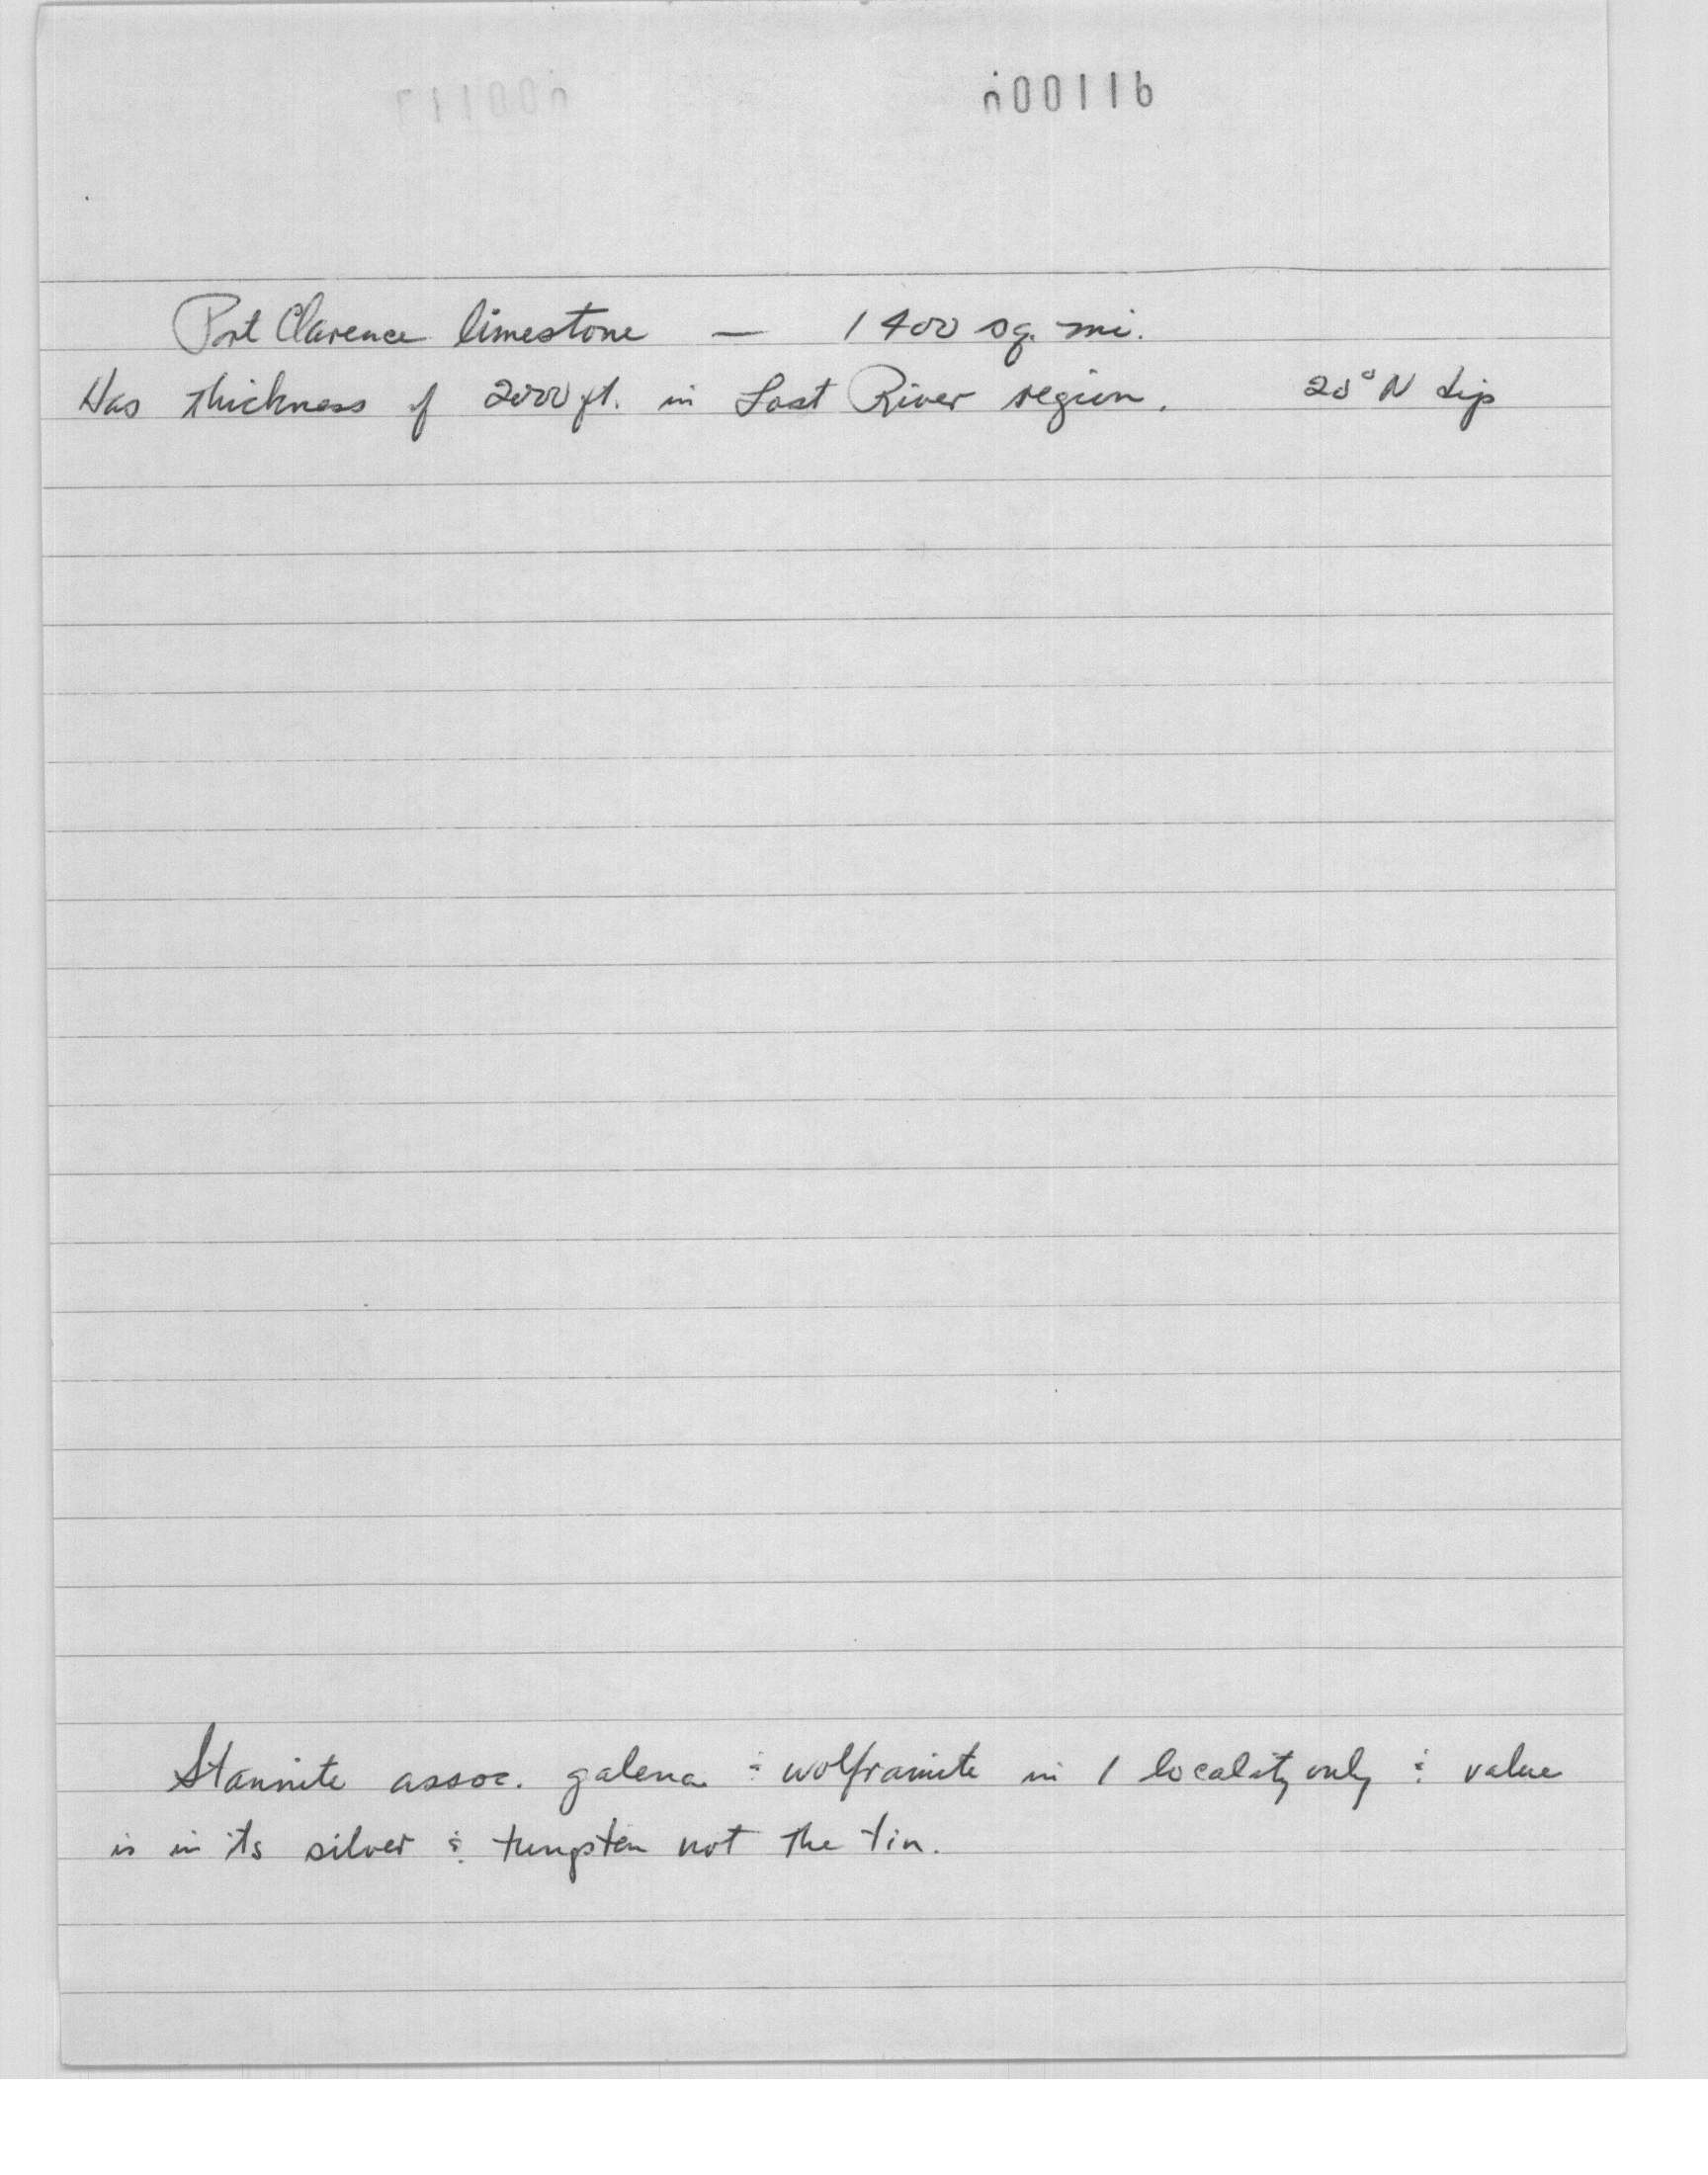 000116
Port Clarence limestone — 1400 sq. mi.
Has thickness of 2000 ft. in Lost River region. 20° N dip
Stannite assoc. galena & wolframite in 1 locality only & value
is in its silver & tungsten not the tin.